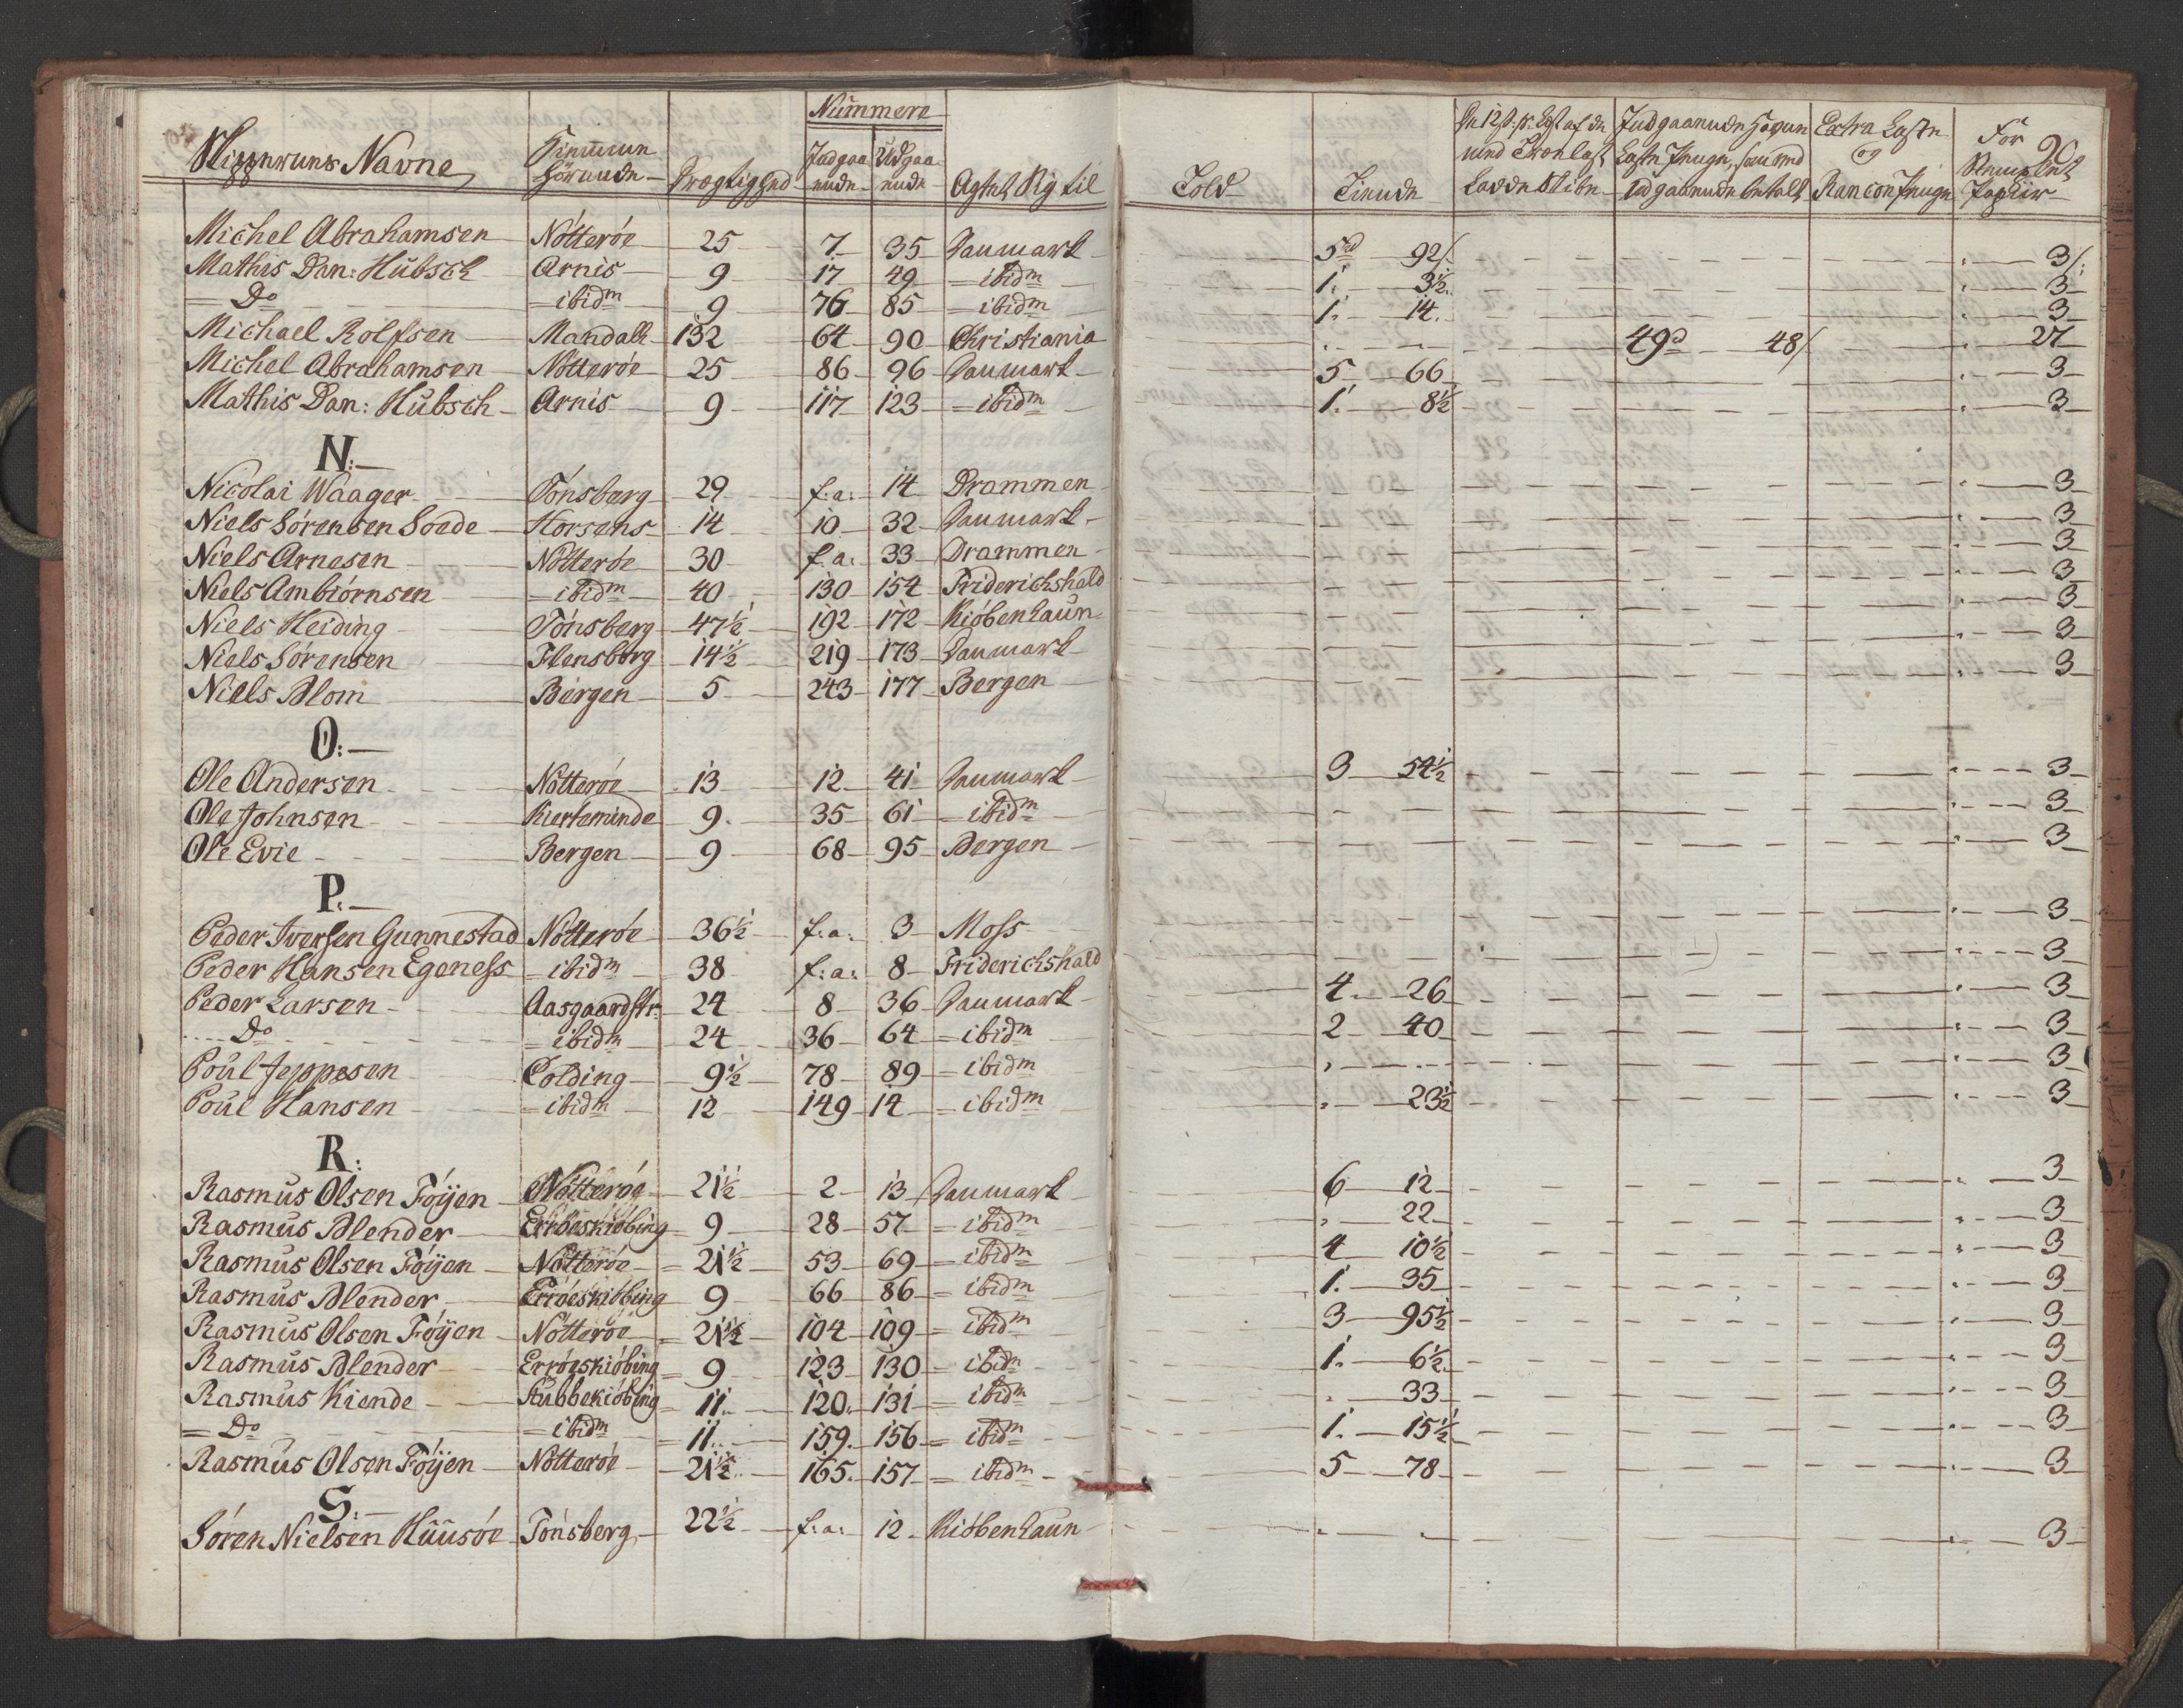 Nummere
Skippernes Navne Hiemme Hörende Drægtighed Indgaaende Udgaaende Agtet Sig til Told Tiende De 12 s: pr. Lest af de med Tronlast Ladde Skibe Indgaaende Havne Laste Penge, som ved Udgaaende betalt Extra Laste og Rancon Penge For Stemplet Papiir 90
Michel Abrahamsen Nötteröe 25 7 35 Danmark 5 rd 92 s 3 s:
Mathis Dan: Hübsch Arnis 9 17 49 = ibidm 1. 3½. 3
= Do = ibidm 9 76 85 = ibidm 1. 14. 3
Michael Rolfsen Mandall 132 64 90 Christiania 49 d 48 s 27
Michel Abrahamsen Nötteröe 25 86 96 Danmark 5 66 3
Mathis Dan: Hübsch Arnis 9 117 123 = ibidm 1. 8½ 3
N:
Nicolai Waager Tönsberg 29 f:a: 14 Drammen 3
Niels Sörensen Soede Horsens 14 10 32 Danmark 3
Niels Arnesen Nötteröe 30 f:a: 33 Drammen 3
Niels Ambiörnsen = ibidm 40 130 154 Friderichshald 3
Niels Heiding Tönsberg 47½ 192 172 Kiöbenhaun 3
Niels Sörensen Flensborg 14½ 219 173 Danmark 3
Niels Blom Bergen 5 243 177 Bergen 3
O:
Ole Andersen Nötteröe 13 12 41 Danmark 3 54½ 3
Ole Johnsen Kierteminde 9. 35 61 = ibidm 3
Ole Evie Bergen 9 68 95 Bergen 3
P:
Peder Iversen Gunnestad Nötteröe 36½ f:a: 3 Moss 3
Peder Hansen Egeness = ibidm 38 f:a: 8 Friderichshald 3
Peder Larsen Aasgaardstr: 24 8 36 Danmark 4 26 3
Do = ibidm 24 36 64 = ibidm 2 40 3
Poul Jeppesen Colding 9½ 78 89 = ibidm 3
Poul Hansen = ibidm 12 149 14 = ibidm 23½ 3
R:
Rasmus Olsen Föÿen Nötteröe 21½ 2 13 Danmark 6 12 3
Rasmus Blender Erröeskiöbing 9 28 57 = ibidm 22 3
Rasmus Olsen Föÿen Nötteröe 21½ 53 69 = ibidm 4 10½ 3
Rasmus Blender Erröeskiöbing 9 66 86 = ibidm 1. 35 3
Rasmus Olsen Föÿen Nötteröe 21½ 104 109 = ibidm 3 95½ 3
Rasmus Blender Erröeskiöbing 9 123 130 = ibidm 1. 6½ 3
Rasmus Kiende Stubbekiöbing 11. 120. 131 = ibidm 33 3
= Do = ibidm 11. 159. 156 = ibidm 1. 15½ 3
Rasmus Olsen Föÿen Nötteröe 21½ 165. 157 = ibidm 5 78 3
S:
Sören Nielsen Huusöe Tönsberg 22½ f:a: 12. Kiöbenhaun 3